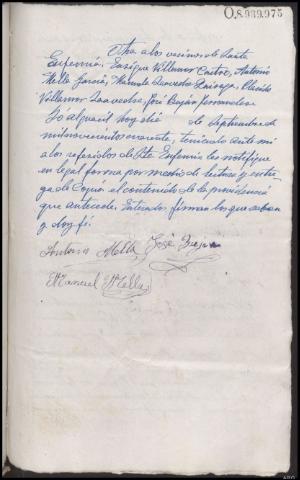 O.8.939.975
Otra a los vecinos de Santa
Eufemia, Enrique Villamor Castro, Antonio
Mella García, Manuela Saavedra, Plácido
Villamor Saavedra, José Buján Fernandez
Yo alguacil hoy día de Septiembre de
mil novecientos cuarenta, teniendo ante mi
a los referidos de Sta Eufemia les notifiqué
en legal forma por medio de lectura y entre
ga de copia el contenido de la providencia
que antecede. Enterados firman los que saben
y doy fé.
Antonio Mella José Buján
Manuel Mella